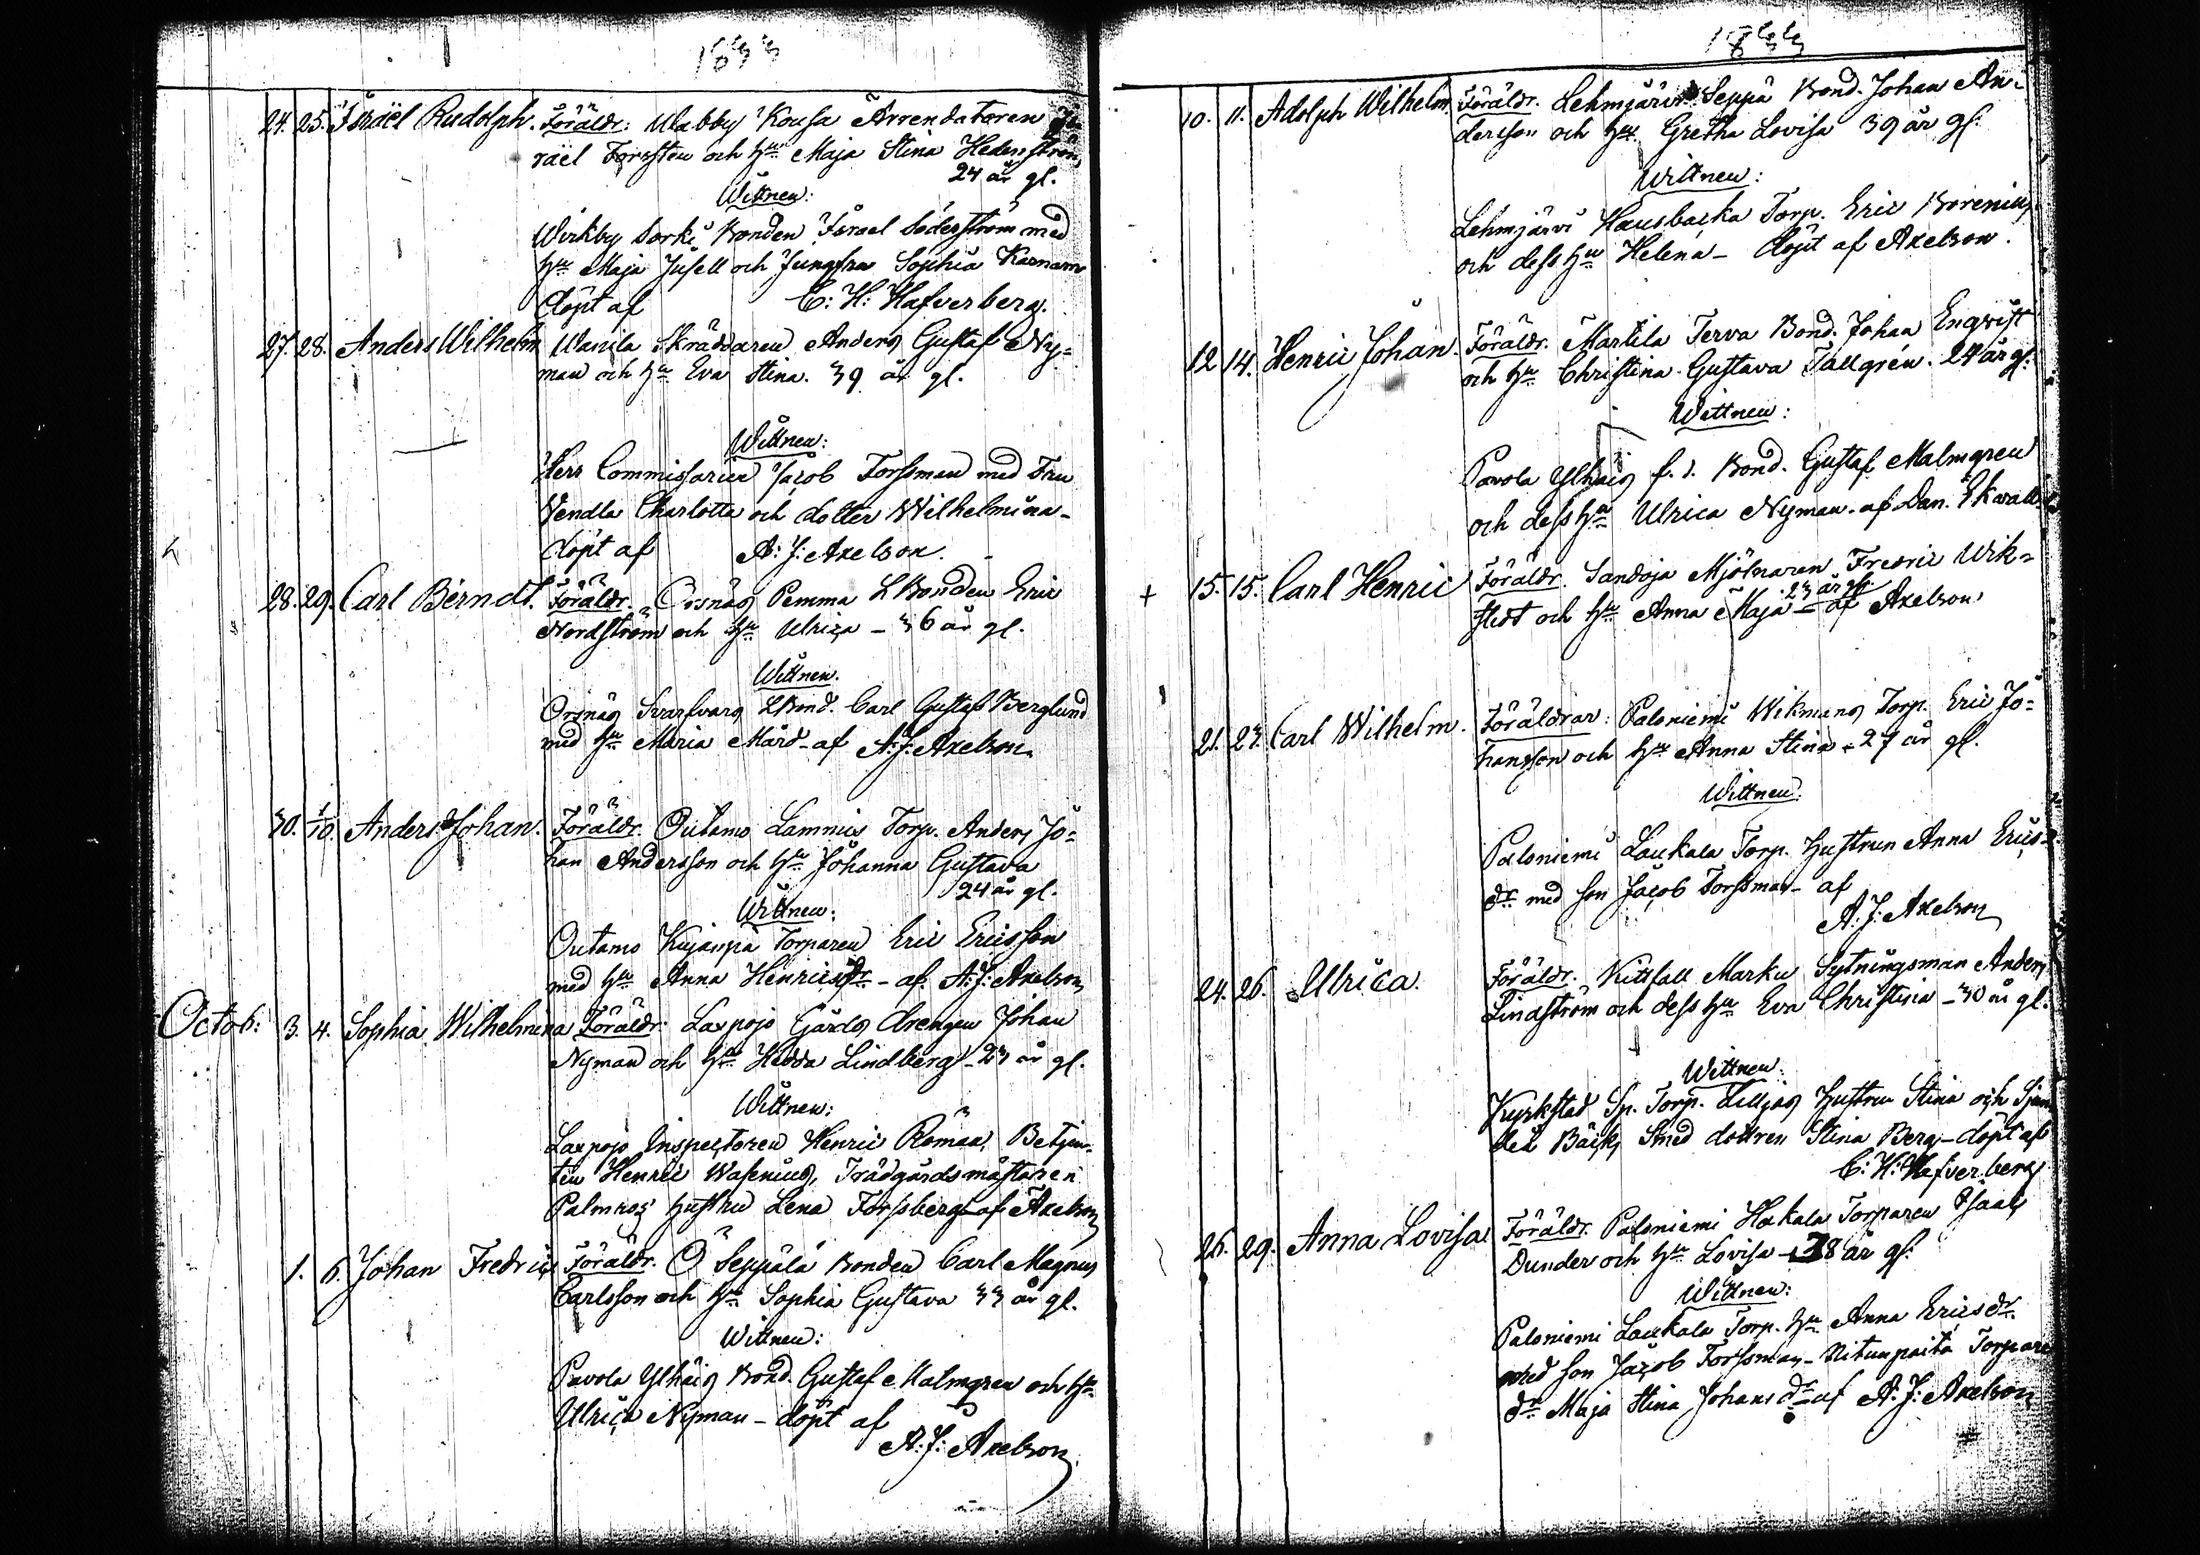 1833
24. 25. Israël Rudolph. Föräldr: Wabby Kousa Arrendatoren Is
raël Forssten och hu Maja Stina Hedersström
24 år gl.
Wittnen:
Wirkby Sorki Bonden Israel Söderström med
hu Maja Jusell och Jungfru Sophia
döpt af C: H: Hafverberg.
27. 28. Anders Wilhelm Wanila Skräddaren Anders Gustaf Ny=
man och hu Eva Stina. 39 år gl.
Wittnen:
Herr Commissarien Jacob Forssman med Fru
Vendla Charlotta och dotter Wilhelmina-
döpt af A: J: Axelson.
28. 29. Carl Berndt. Föräldr. Orsnäs Pemma L Bonden Eric
Nordström och hu Ulrica - 36 år gl.
Wittnen.
Orsnäs Svarfvars L Bond. Carl Gustaf Berglund
med hu Maria Mård - af A: J: Axelson
30. 1/10. Anders Johan. Föräldr. Outamo Lammis Torp. Anders Jo=
han Andersson och hu Johanna Gustava
24 år gl.
Wittnen:
Outamo Kujanpä Torparen Eric Ericsson
med hu Anna Henricsdr - af A: J: Axelson
Octob: 3. 4. Sophia Wilhelmina Föräldr: Laxpojo Gårds drengen Johan
Nyman och hu Hedda Lindberg - 23 år gl.
Wittnen:
Laxpojo Inspectoren Henric Roman, Betjen-
ten Henric Wasenius, Trädgårdsmästaren
Palmros hustru Lena Forssberg - af Axelson
1. 6. Johan Fredric Föräldr. Ö Seppälä Bonden Carl Magnus
Carlsson och hu Sophia Gustava 33 år gl.
Wittnen:
Pavola Ylhäis Bond. Gustaf Malmgren och hu
Ulrica Nyman - döpt af
A: J: Axelson
1833
10. 11. Adolph Wilhelm. Föräldr. Lehmjärvi Seppä Bond. Johan An-
dersson och hu Gretha Lovisa 39 år gl.
Wittnen:
Lehmjärvi Hausbacka Torp. Eric Borenius
och dess hu Helena - döpt af Axelson.
12 14. Henric Johan. Föräldr. Martila Terva Bond. Johan Enqvist
och hu Christina Gustava Tallgrén. 24 år gl.
Wittnen:
Pavola Ylhäis f. d. Bond. Gustaf Malmgren
och dess hu Ulrica Nyman - af Dan.
+ 15. 15. Carl Henric Föräldr. Sandoja Mjölnaren Fredric Wik=
stedt och hu Anna Maja 23 år gl. - af Axelson
21. 23. Carl Wilhelm. Föräldrar: Paloniemi Wikmans Torp. Eric Jo=
hansson och hu Anna Stina - 27 år gl.
Wittnen.
Paloniemi Laukala Torp. Hustrun Anna Erics-
dr med son Jacob Forssman - af
A: J: Axelson
24. 26. Ulrica. Föräldr. Kittfall Marku Sytningsman Anders
Lindström och dess hu Eva Christina - 30 år gl.
Wittnen:
Kyrkstad Sp. Torp. Liljas Hustru Stina och
Bäck, Smed dottren Stina Berg - döpt af
C: H: Hafverberg
26. 29. Anna Lovisa Föräldr. Paloniemi Hakala Torparen Isaac
Dunder och hu Lovisa - 38 år gl.
Wittnen:
Paloniemi Laukala Torp. hu Anna Ericsdr
med son Jacob Forssman - Nitunpaita Torpare
dr Maja Stina Johansdr - af A: J: Axelson